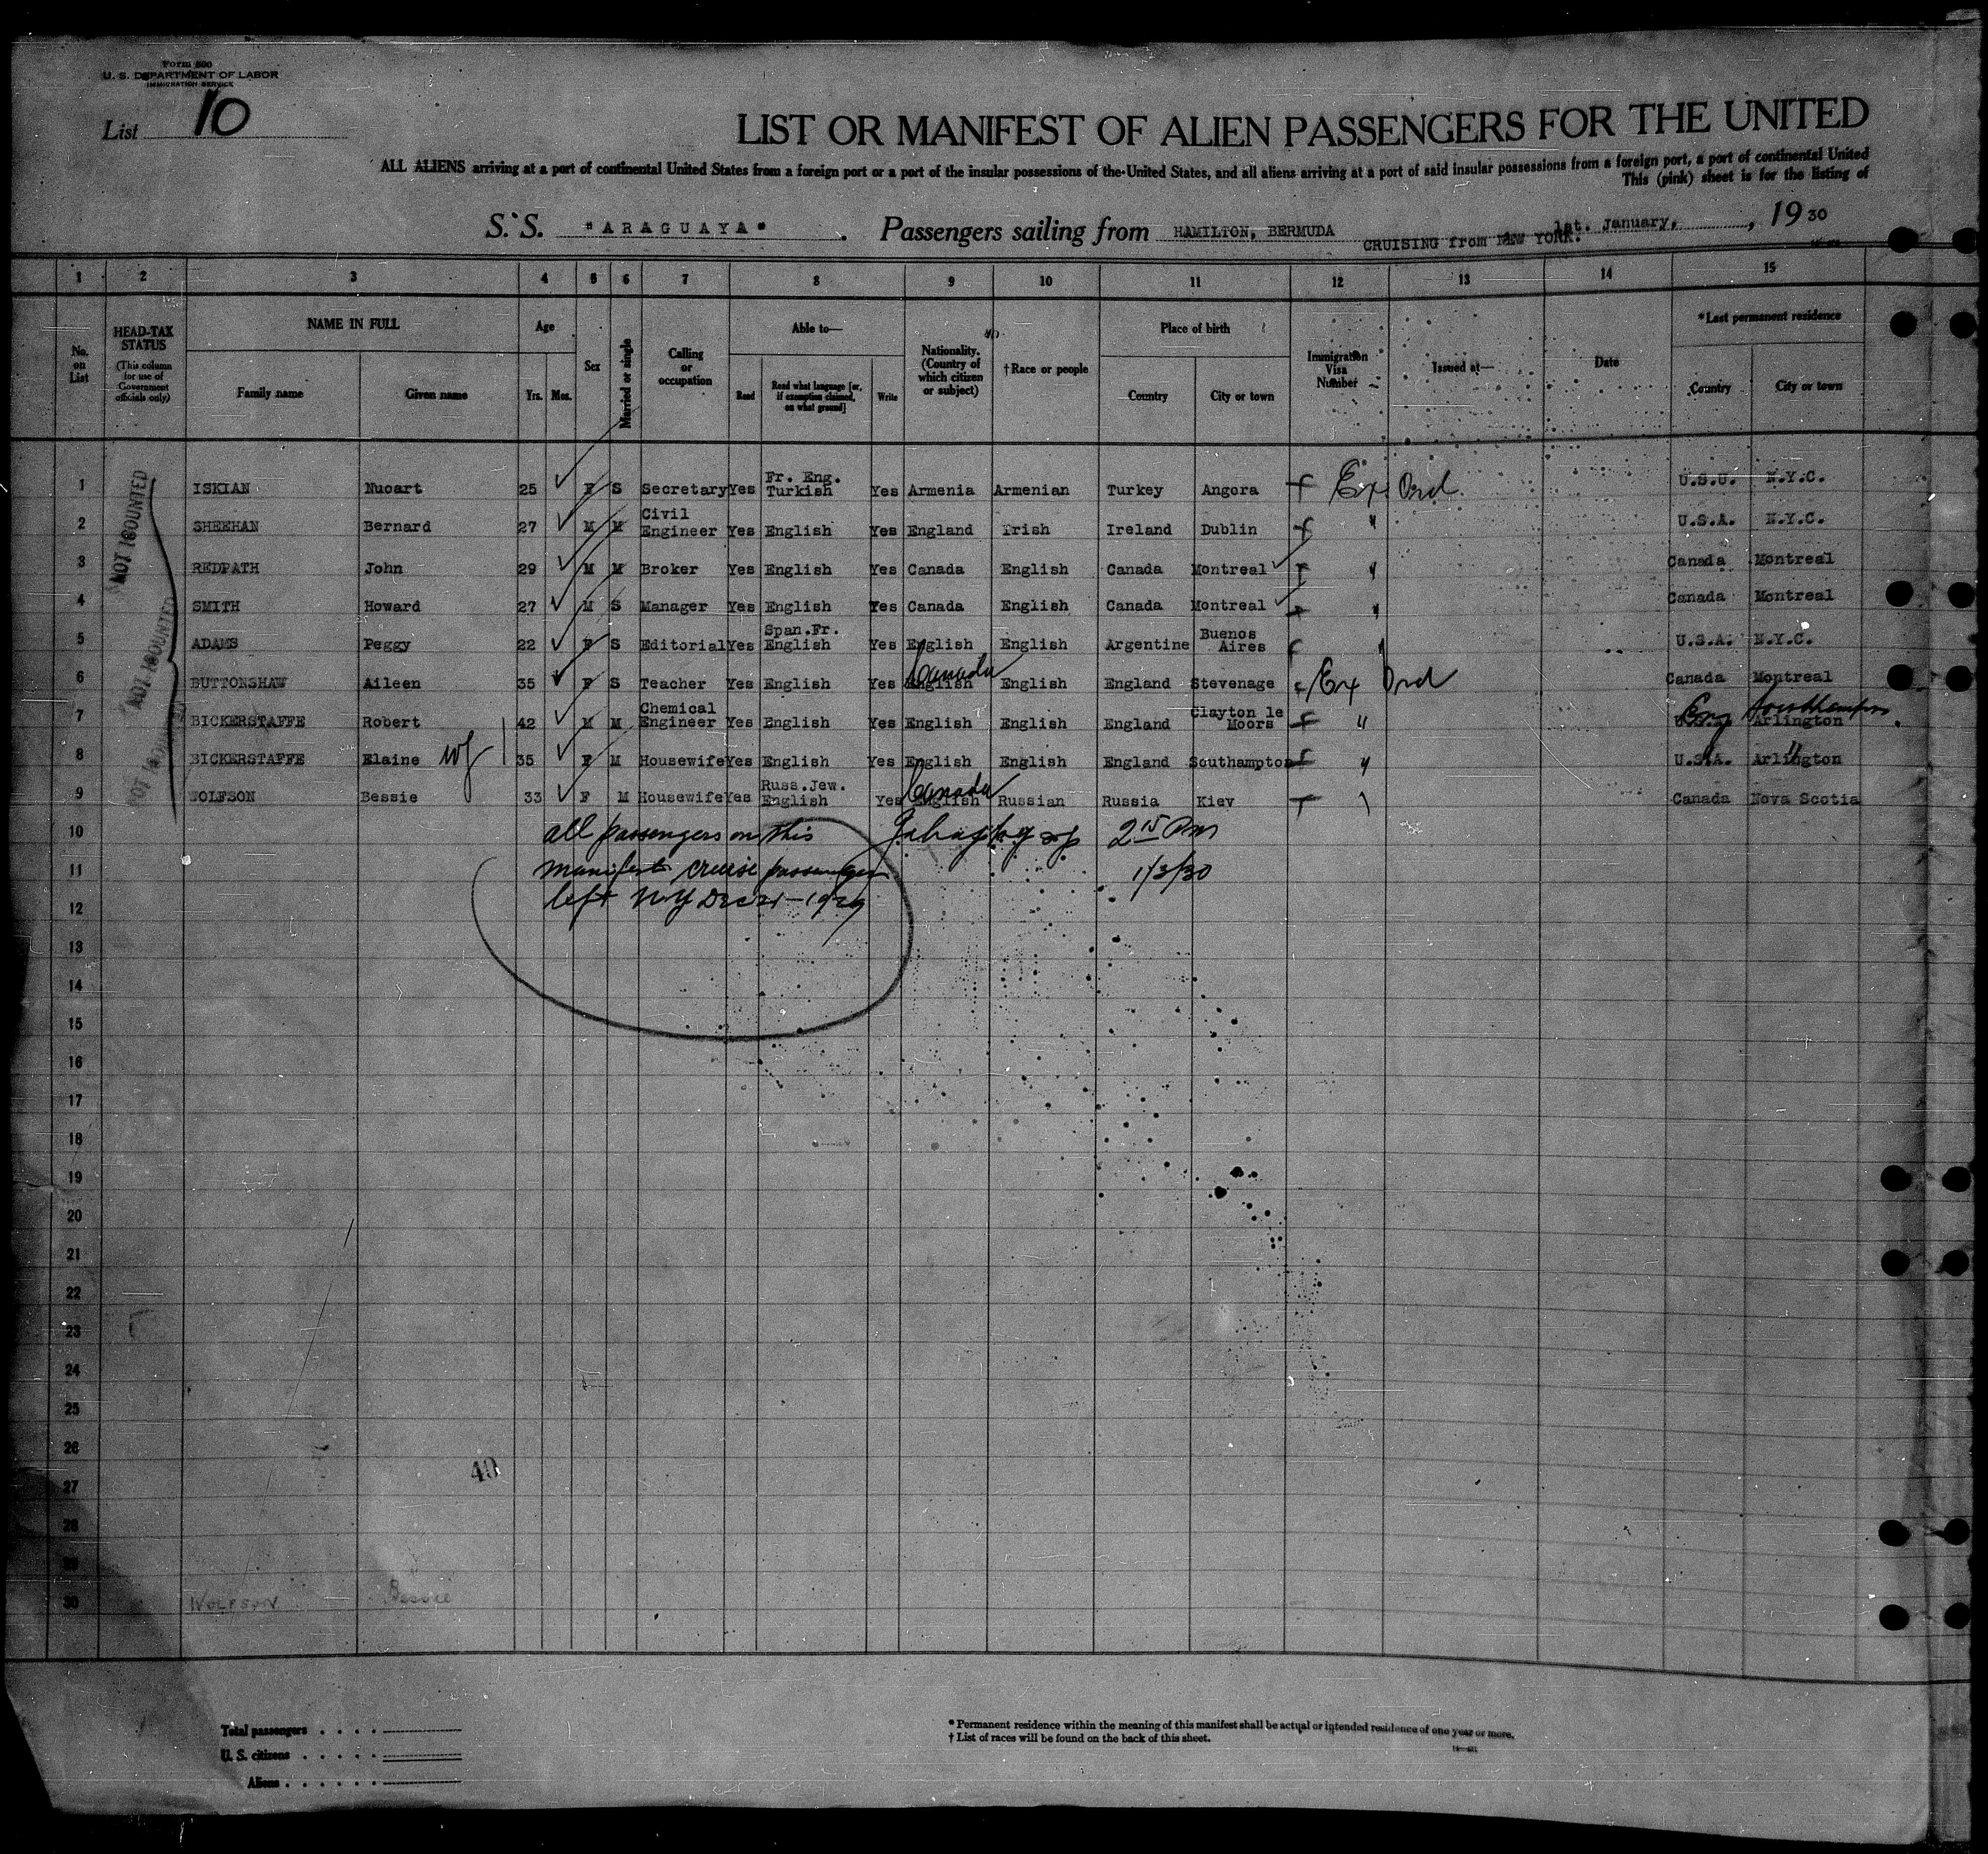 Form 500
U. S. DEPARTMENT OF LABOR
IMMIGRATION SERVICE
List 10
LIST OR MANIFEST OF ALIEN PASSENGERS FOR THE UNITED
ALL ALIENS arriving at a port of continental United States from a foreign port or a port of the insular possessions of the United States, and all aliens arriving at a port of said insular possessions from a foreign port, a port of continental United
This (pink) sheet is for the listing of
S. S. "ARAGUAYA" . Passengers sailing from HAMILTON, BERMUDA 1st. January, , 19 30
CRUISING from NEW YORK.
1 2 3 4 5 6 7 8 9 10 11 12 13 14 15
No. on List
HEAD-TAX STATUS
(This column for use of Government officials only)
NAME IN FULL
Family name Given name
Age
Yrs. Mos.
Sex
Married or single
Calling or occupation
Able to—
Read Read what language [or, if exemption claimed, on what ground] Write
Nationality. (Country of which citizen or subject)
†Race or people
Place of birth
Country City or town
Immigration Visa Number
Issued at—
Date
*Last permanent residence
Country City or town
NOT
1 ISKIAN Nuoart 25 F S Secretary Yes Fr. Eng. Turkish Yes Armenia Armenian Turkey Angora Ex Ord U.S.U. N.Y.C.
2 SHEEHAN Bernard 27 M M Civil Engineer Yes English Yes England Irish Ireland Dublin " U.S.A. N.Y.C.
3 REDPATH John 29 M M Broker Yes English Yes Canada English Canada Montreal " Canada Montreal
4 SMITH Howard 27 M S Manager Yes English Yes Canada English Canada Montreal " Canada Montreal
5 ADAMS Peggy 22 F S Editorial Yes Span.Fr. English Yes English English Argentine Buenos Aires U.S.A. N.Y.C.
6 BUTTONSHAW Aileen 35 F S Teacher Yes English Yes English Canada English England Stevenage Ex Ord Canada Montreal
7 BICKERSTAFFE Robert 42 M M Chemical Engineer Yes English Yes English English England Clayton le Moors " Eng Southampton Arlington
8 BICKERSTAFFE Elaine wf 35 F M Housewife Yes English Yes English English England Southampton " U.S.A. Arlington "
9 WOLFSON Bessie 33 F M Housewife Yes Russ.Jew. English Yes English Canada Russian Russia Kiev Canada Nova Scotia
10 all passengers on this 2 15 Pm
11 manifest cruise passengers 1/3/30
12 left NY Dec 21-1929
13
14
15
16
17
18
19
20
21
22
23
24
25
26
40
27
28
29
30 WOLFSON Bessie
Total passengers . . . .
U. S. citizens . . . . .
Aliens . . . . . .
* Permanent residence within the meaning of this manifest shall be actual or intended residence of one year or more.
† List of races will be found on the back of this sheet.